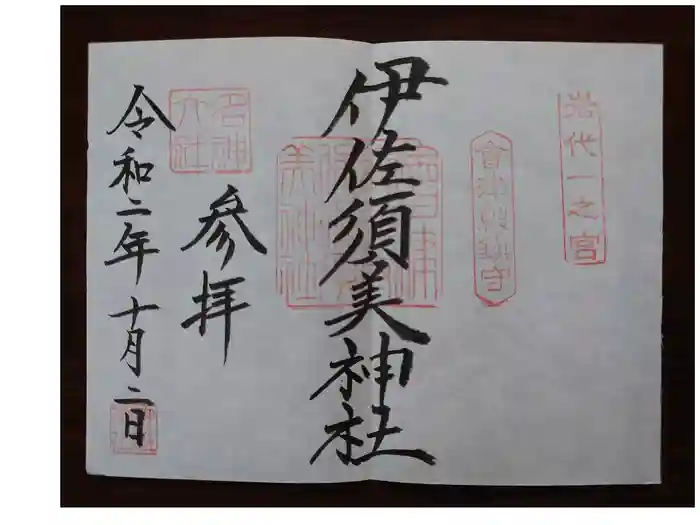 岩代一之宮
伊佐須美神社
参拝
名神大社
令和二年十月二日